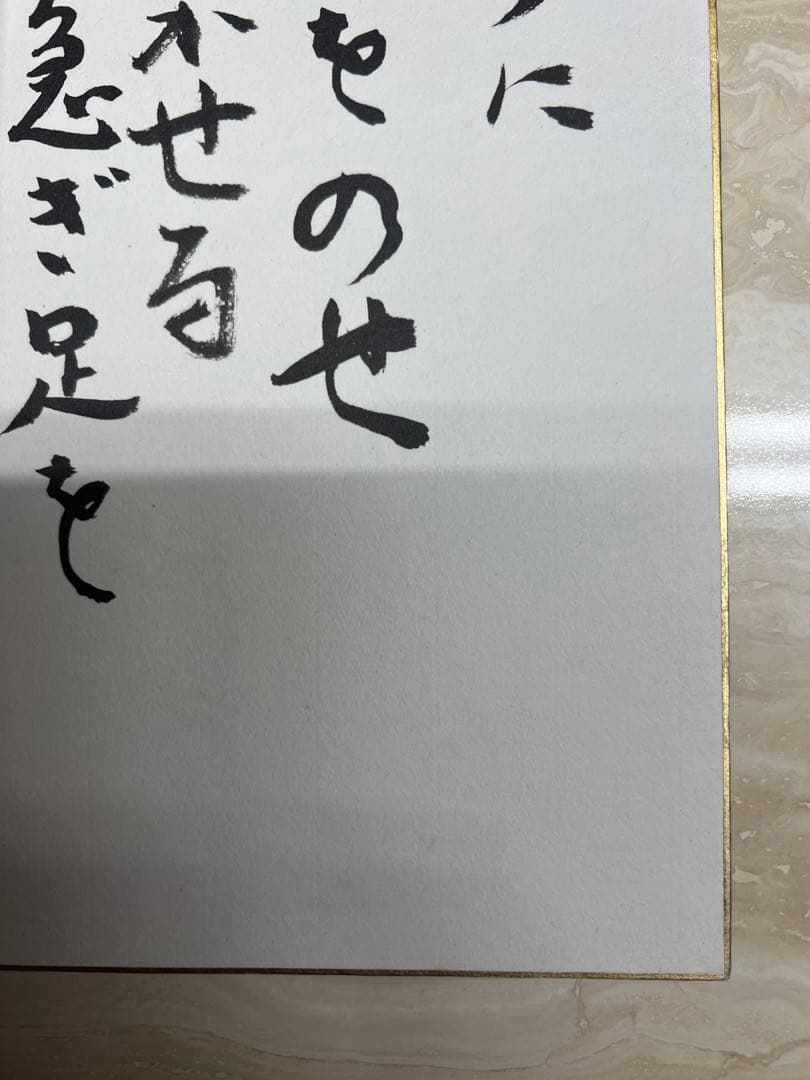 に
をのせ
かせる
急ぎ足を